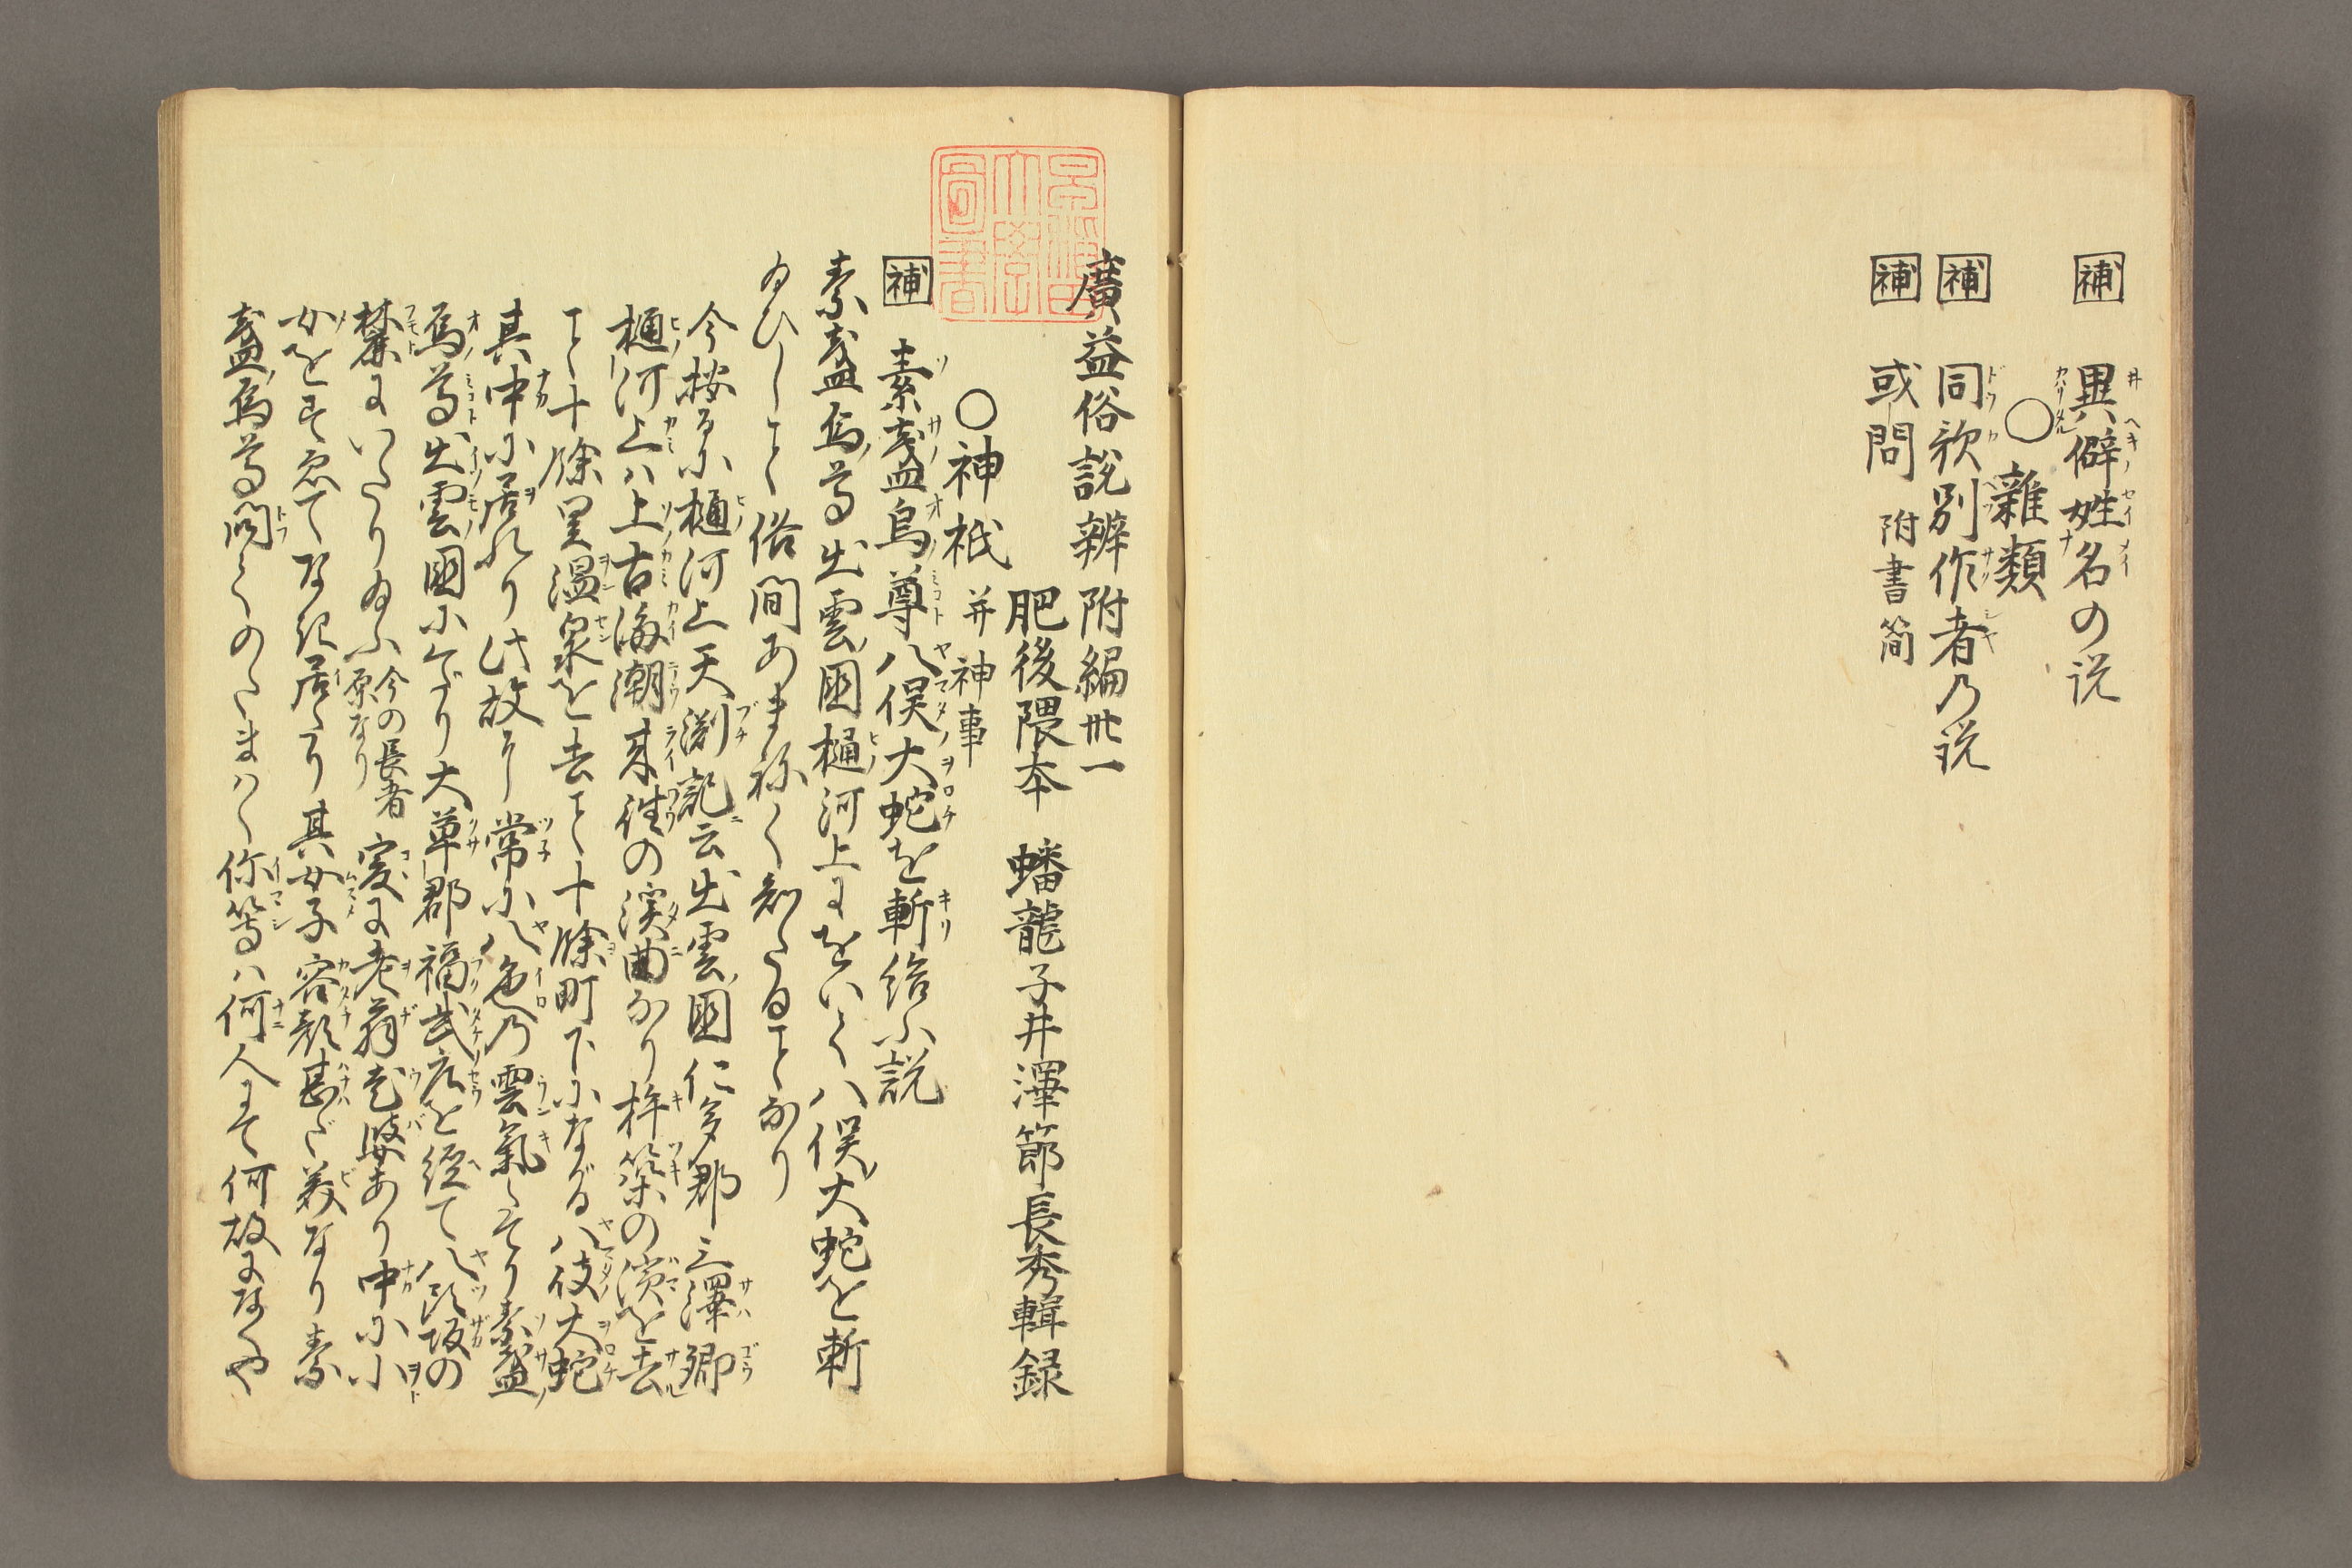 補 異僻姓名の説
○雑類
補 同歌別作者乃説
補 或問 附書簡
廣益俗説辨附編卅一
肥後隈本 蟠龍子井澤節長秀輯録
○神祇 并神事
補 素盞烏尊八俣大蛇を斬給ふ説
素盞烏尊出雲国樋河上にをいて八俣大蛇を斬
給ひしこと俗間あまねく知たることなり
今按るに樋河上天渕記云出雲国仁多郡三澤郷
樋河上ハ上古海潮来往の渓曲なり杵築の濱を去
こと十餘里温泉を去こと十餘町下にながる八伎大蛇
其中に居れり此故に常に八色乃雲氣たてり素盞
烏尊出雲国に下り大草郡福武庄を經て八頭坂の
麓にいたり給ふ 今の長者原なり 爰に老翁老婆あり中に小
女をすゑてなき居たり其女子容顔甚だ美なり素
盞烏尊問てのたまハく你等ハ何人にて何故になくや